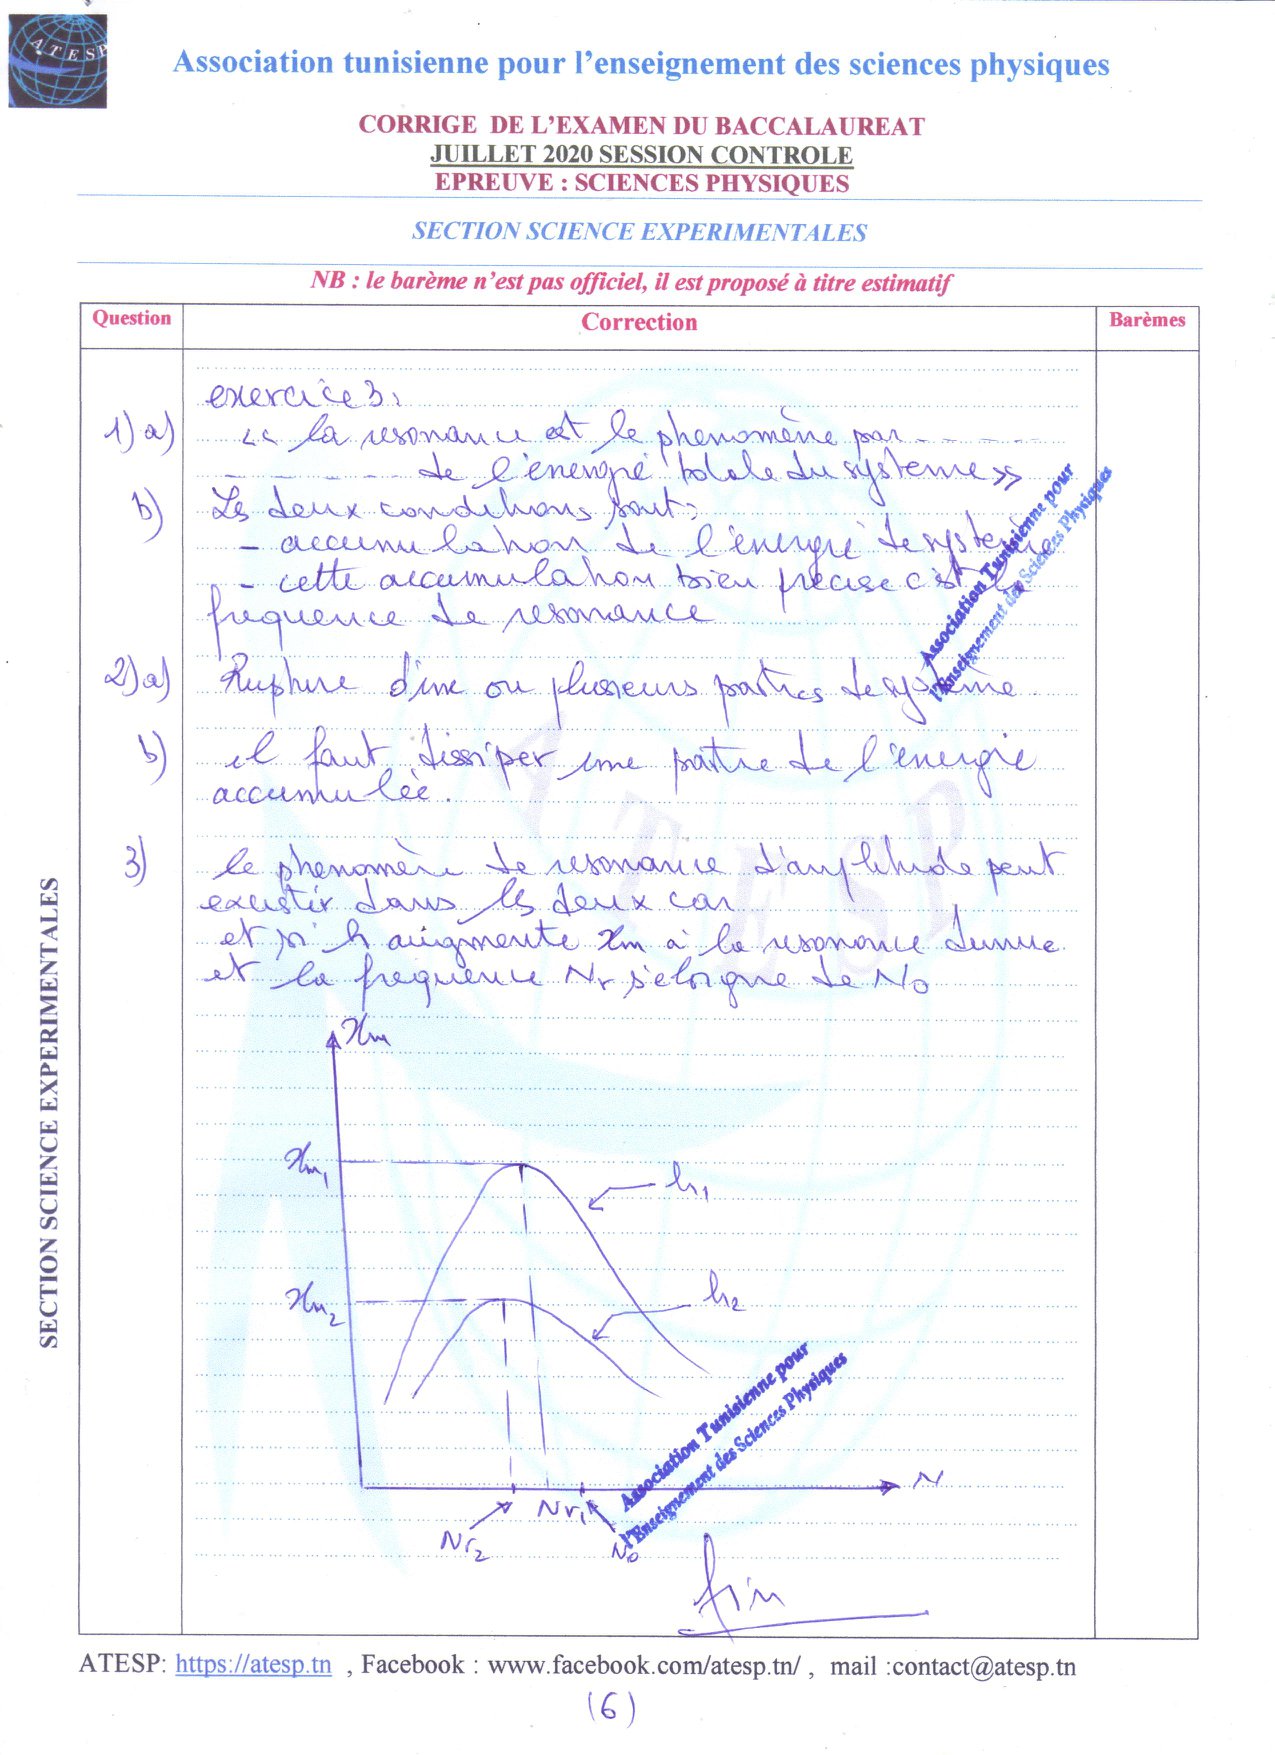 ATESP
Association tunisienne pour l'enseignement des sciences physiques
CORRIGE DE L'EXAMEN DU BACCALAUREAT
JUILLET 2020 SESSION CONTROLE
EPREUVE : SCIENCES PHYSIQUES
SECTION SCIENCE EXPERIMENTALES
NB : le barème n'est pas officiel, il est proposé à titre estimatif
Question Correction Barèmes
exercice 3.
1) a) << la resonance est le phenomène par - - - - -
- - - - - de l'énergie totale du système >>
b) Les deux conditions sont:
- accumulation de l'énergie de système
- cette accumulation bien precise c'est la
frequence de resonance
2) a) Rupture d'une ou plusieurs parties de système
b) il faut dissiper une partie de l'énergie
accumulée.
3) le phenomèn de resonance d'amplitude peut
existir dans les deux cas
et si h augmente Xm à la resonance dimue
et la frequence Nr s'éloigne de N0
Xm
Xm1
h1
Xm2
h2
N
Nr2 Nr1 N0
fin
Association Tunisienne pour
l'Enseignement des Sciences Physiques
Association Tunisienne pour
l'Enseignement des Sciences Physiques
ATESP
SECTION SCIENCE EXPERIMENTALES
ATESP: https://atesp.tn , Facebook : www.facebook.com/atesp.tn/ , mail :contact@atesp.tn
(6)